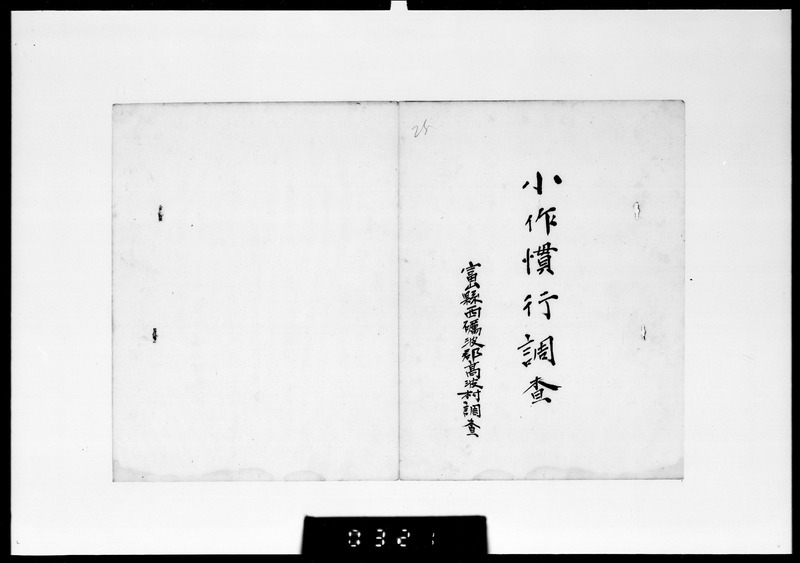 小作慣行調査
富山縣西礪波郡髙波村調査
28
0321